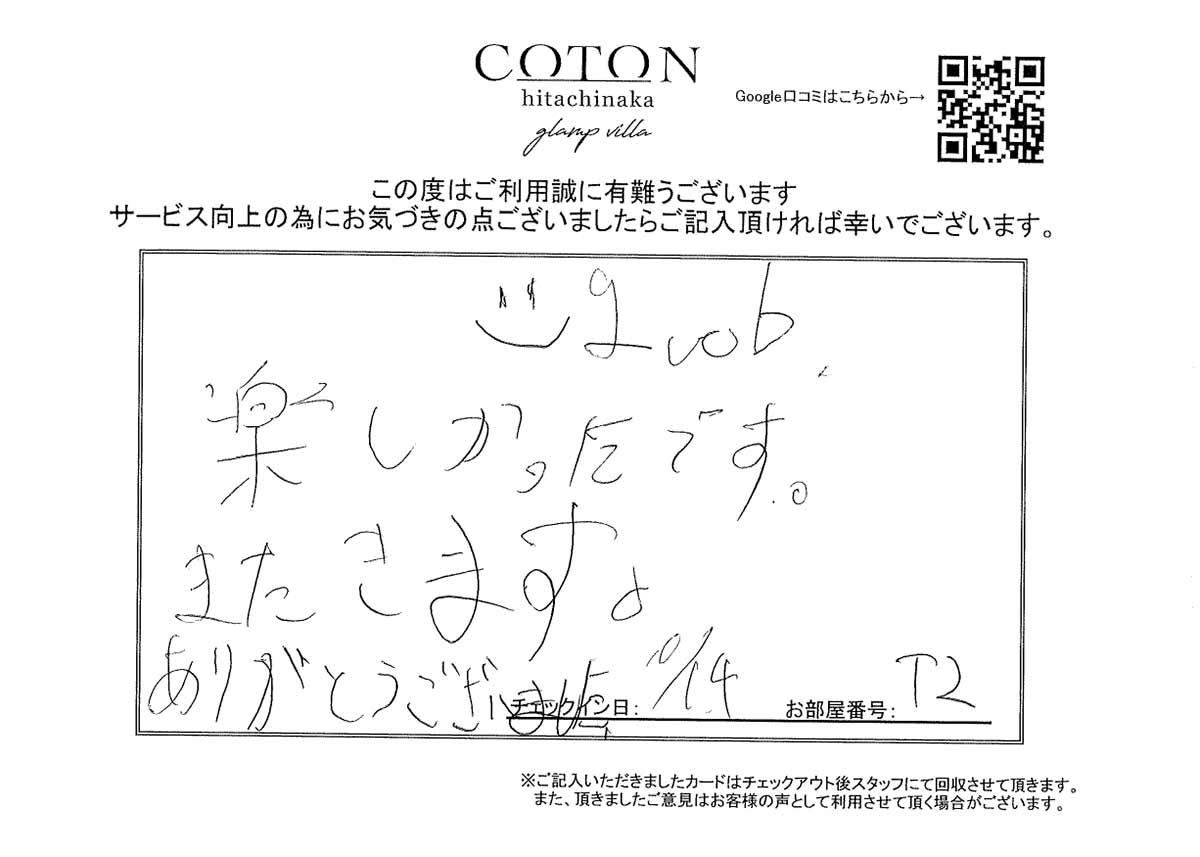 COTON
hitachinaka
glamp villa
Google口コミはこちらから→
この度はご利用誠に有難うございます
サービス向上の為にお気づきの点ございましたらご記入頂ければ幸いでございます。
楽しかったです。
またきますよ
ありがとうございました
チェックイン日: 10/14 お部屋番号: T2
※ご記入いただきましたカードはチェックアウト後スタッフにて回収させて頂きます。
また、頂きましたご意見はお客様の声として利用させて頂く場合がございます。